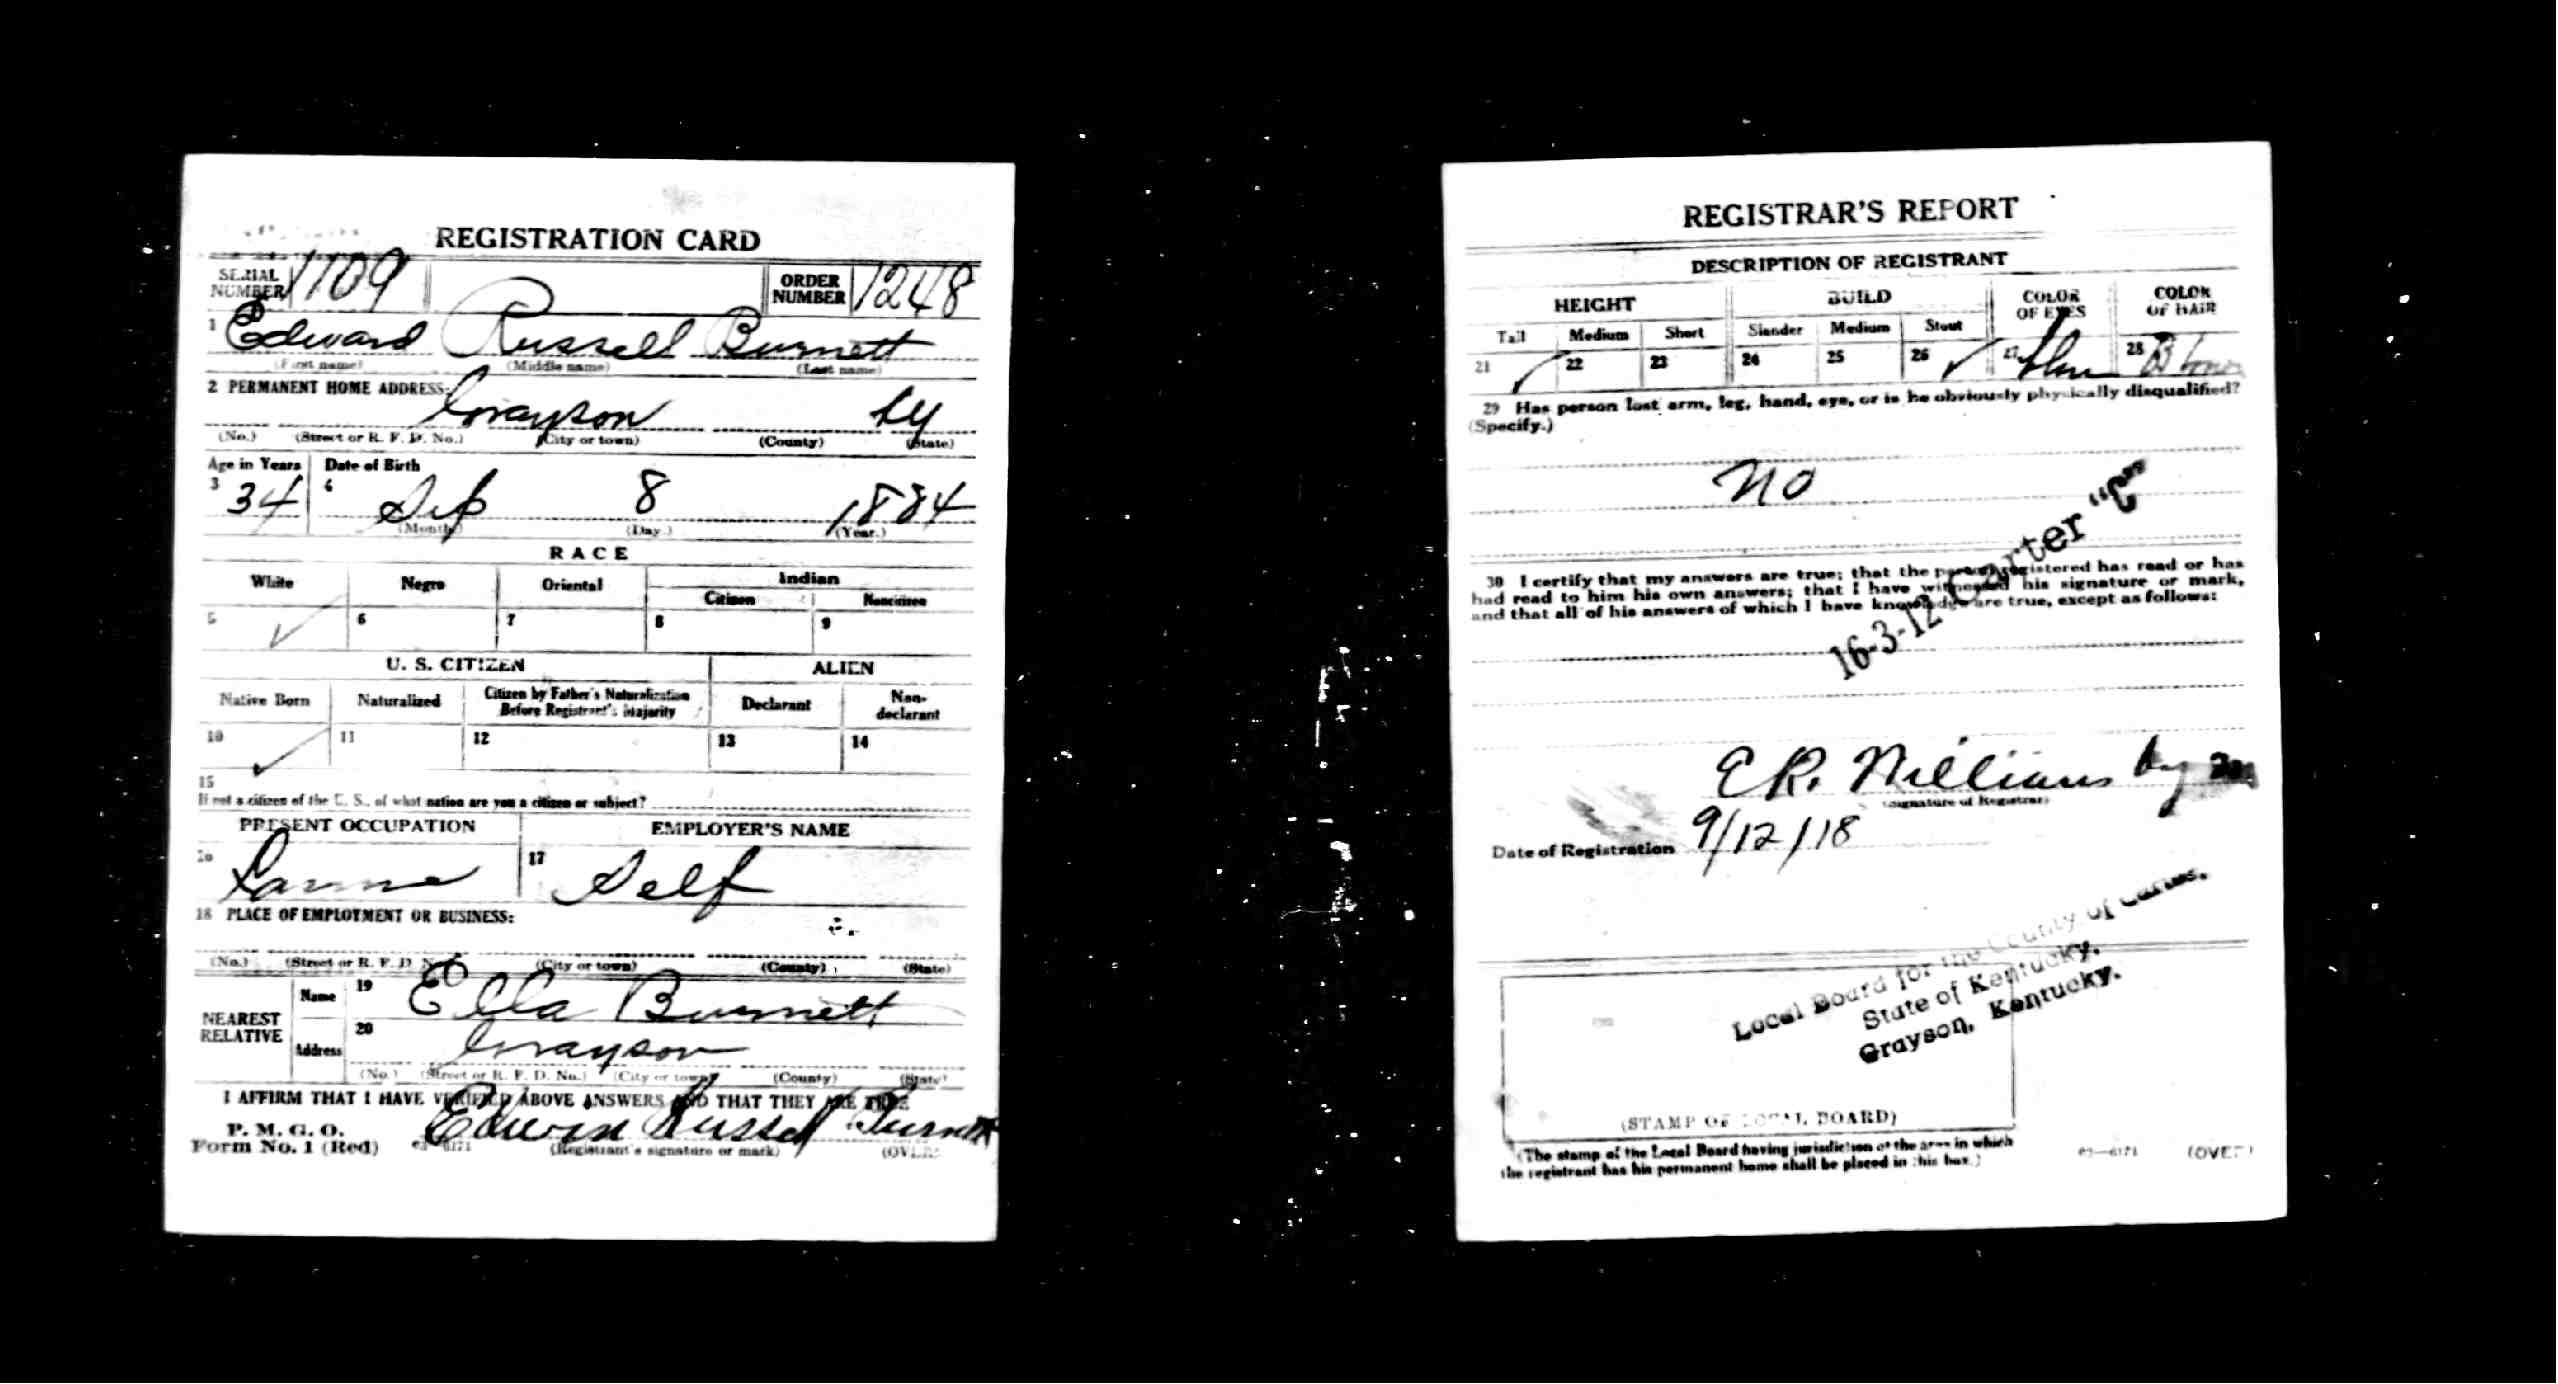 REGISTRATION CARD
SERIAL NUMBER 1709 ORDER NUMBER 1248
1 Edward Russell Burnett
(First name) (Middle name) (Last name)
2 PERMANENT HOME ADDRESS:
Grayson Ky
(No.) (Street or R. F. D. No.) (City or town) (County) (State)
Age in Years Date of Birth
3 34 4 Sep 8 1884
(Month) (Day.) (Year.)
RACE
White Negro Oriental Indian
Citizen Noncitizen
5 ✓ 6 7 8 9
U. S. CITIZEN ALIEN
Native Born Naturalized Citizen by Father's Naturalization Before Registrant's Majority Declarant Non-declarant
10 ✓ 11 12 13 14
15
If not a citizen of the U. S., of what nation are you a citizen or subject?
PRESENT OCCUPATION EMPLOYER'S NAME
16 17 Self
18 PLACE OF EMPLOYMENT OR BUSINESS:
(No.) (Street or R. F. D. No.) (City or town) (County) (State)
NEAREST RELATIVE Name 19 Ella Burnett
Address 20 Grayson
(No.) (Street or R. F. D. No.) (City or town) (County) (State)
I AFFIRM THAT I HAVE VERIFIED ABOVE ANSWERS AND THAT THEY ARE TRUE
P. M. G. O.
Form No. 1 (Red) 03—6171 Edwin Russell Burnett
(Registrant's signature or mark) (OVER)
REGISTRAR'S REPORT
DESCRIPTION OF REGISTRANT
HEIGHT BUILD COLOR OF EYES COLOR OF HAIR
Tall Medium Short Slender Medium Stout
21 ✓ 22 23 24 25 26 ✓ 27 28
29 Has person lost arm, leg, hand, eye, or is he obviously physically disqualified?
(Specify.)
No
16-3-12 Carter "C"
30 I certify that my answers are true; that the person registered has read or has
had read to him his own answers; that I have witnessed his signature or mark,
and that all of his answers of which I have knowledge are true, except as follows:
E.R. Williams by
(Signature of Registrar)
Date of Registration 9/12/18
Local Board for the County of Carter,
State of Kentucky.
Grayson, Kentucky.
(STAMP OF LOCAL BOARD)
(The stamp of the Local Board having jurisdiction of the area in which
the registrant has his permanent home shall be placed in this box.)
03—6171 (OVER)